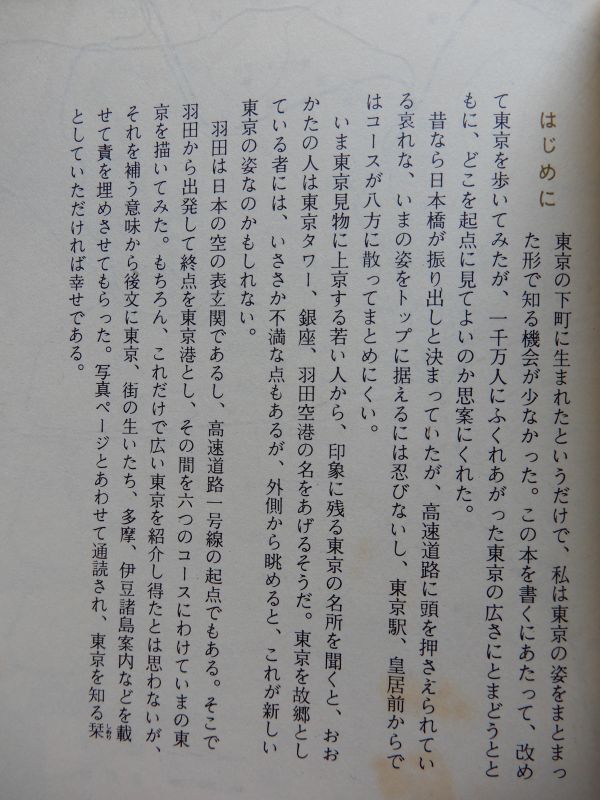 はじめに
東京の下町に生まれたというだけで、私は東京の姿をまとまっ
た形で知る機会が少なかった。この本を書くにあたって、改め
て東京を歩いてみたが、一千万人にふくれあがった東京の広さにとまどうとと
もに、どこを起点に見てよいのか思案にくれた。
昔なら日本橋が振り出しと決まっていたが、高速道路に頭を押さえられてい
る哀れな、いまの姿をトップに据えるには忍びないし、東京駅、皇居前からで
はコースが八方に散ってまとめにくい。
いま東京見物に上京する若い人から、印象に残る東京の名所を聞くと、おお
かたの人は東京タワー、銀座、羽田空港の名をあげるそうだ。東京を故郷とし
ている者には、いささか不満な点もあるが、外側から眺めると、これが新しい
東京の姿なのかもしれない。
羽田は日本の空の表玄関であるし、高速道路一号線の起点でもある。そこで
羽田から出発して終点を東京港とし、その間を六つのコースにわけていまの東
京を描いてみた。もちろん、これだけで広い東京を紹介し得たとは思わないが、
それを補う意味から後文に東京、街の生いたち、多摩、伊豆諸島案内などを載
せて責を埋めさせてもらった。写真ページとあわせて通読され、東京を知る栞
しおり
としていただければ幸せである。